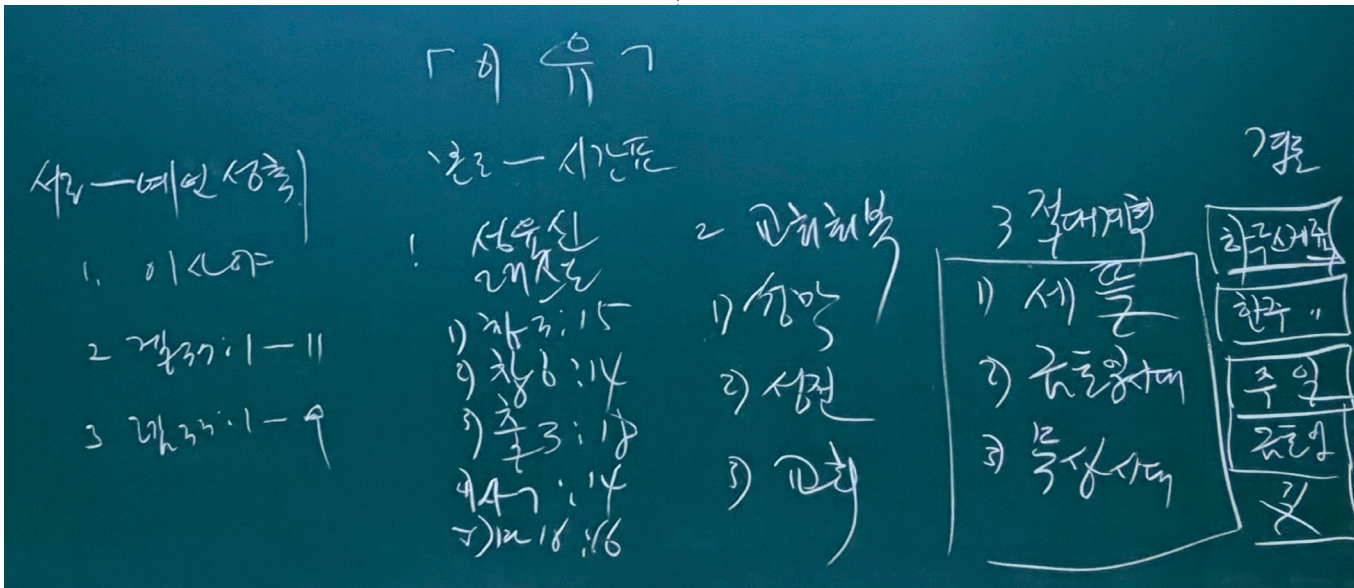 「이유」
서론 - 예언 성취
1. 이사야
2 겔37:1-11
3 렘33:1-9
본론 - 시간표
1
성육신
재창조
1) 창3:15
2) 창6:14
3) 출3:18
4) 사7:14
5) 마16:16
2 교회회복
1) 성막
2) 성전
3) 교회
3 절대계획
1) 세 뜰
2) 금토일시대
3) 묵상시대
결론
한국산제물
한주 〃
주일
금토일